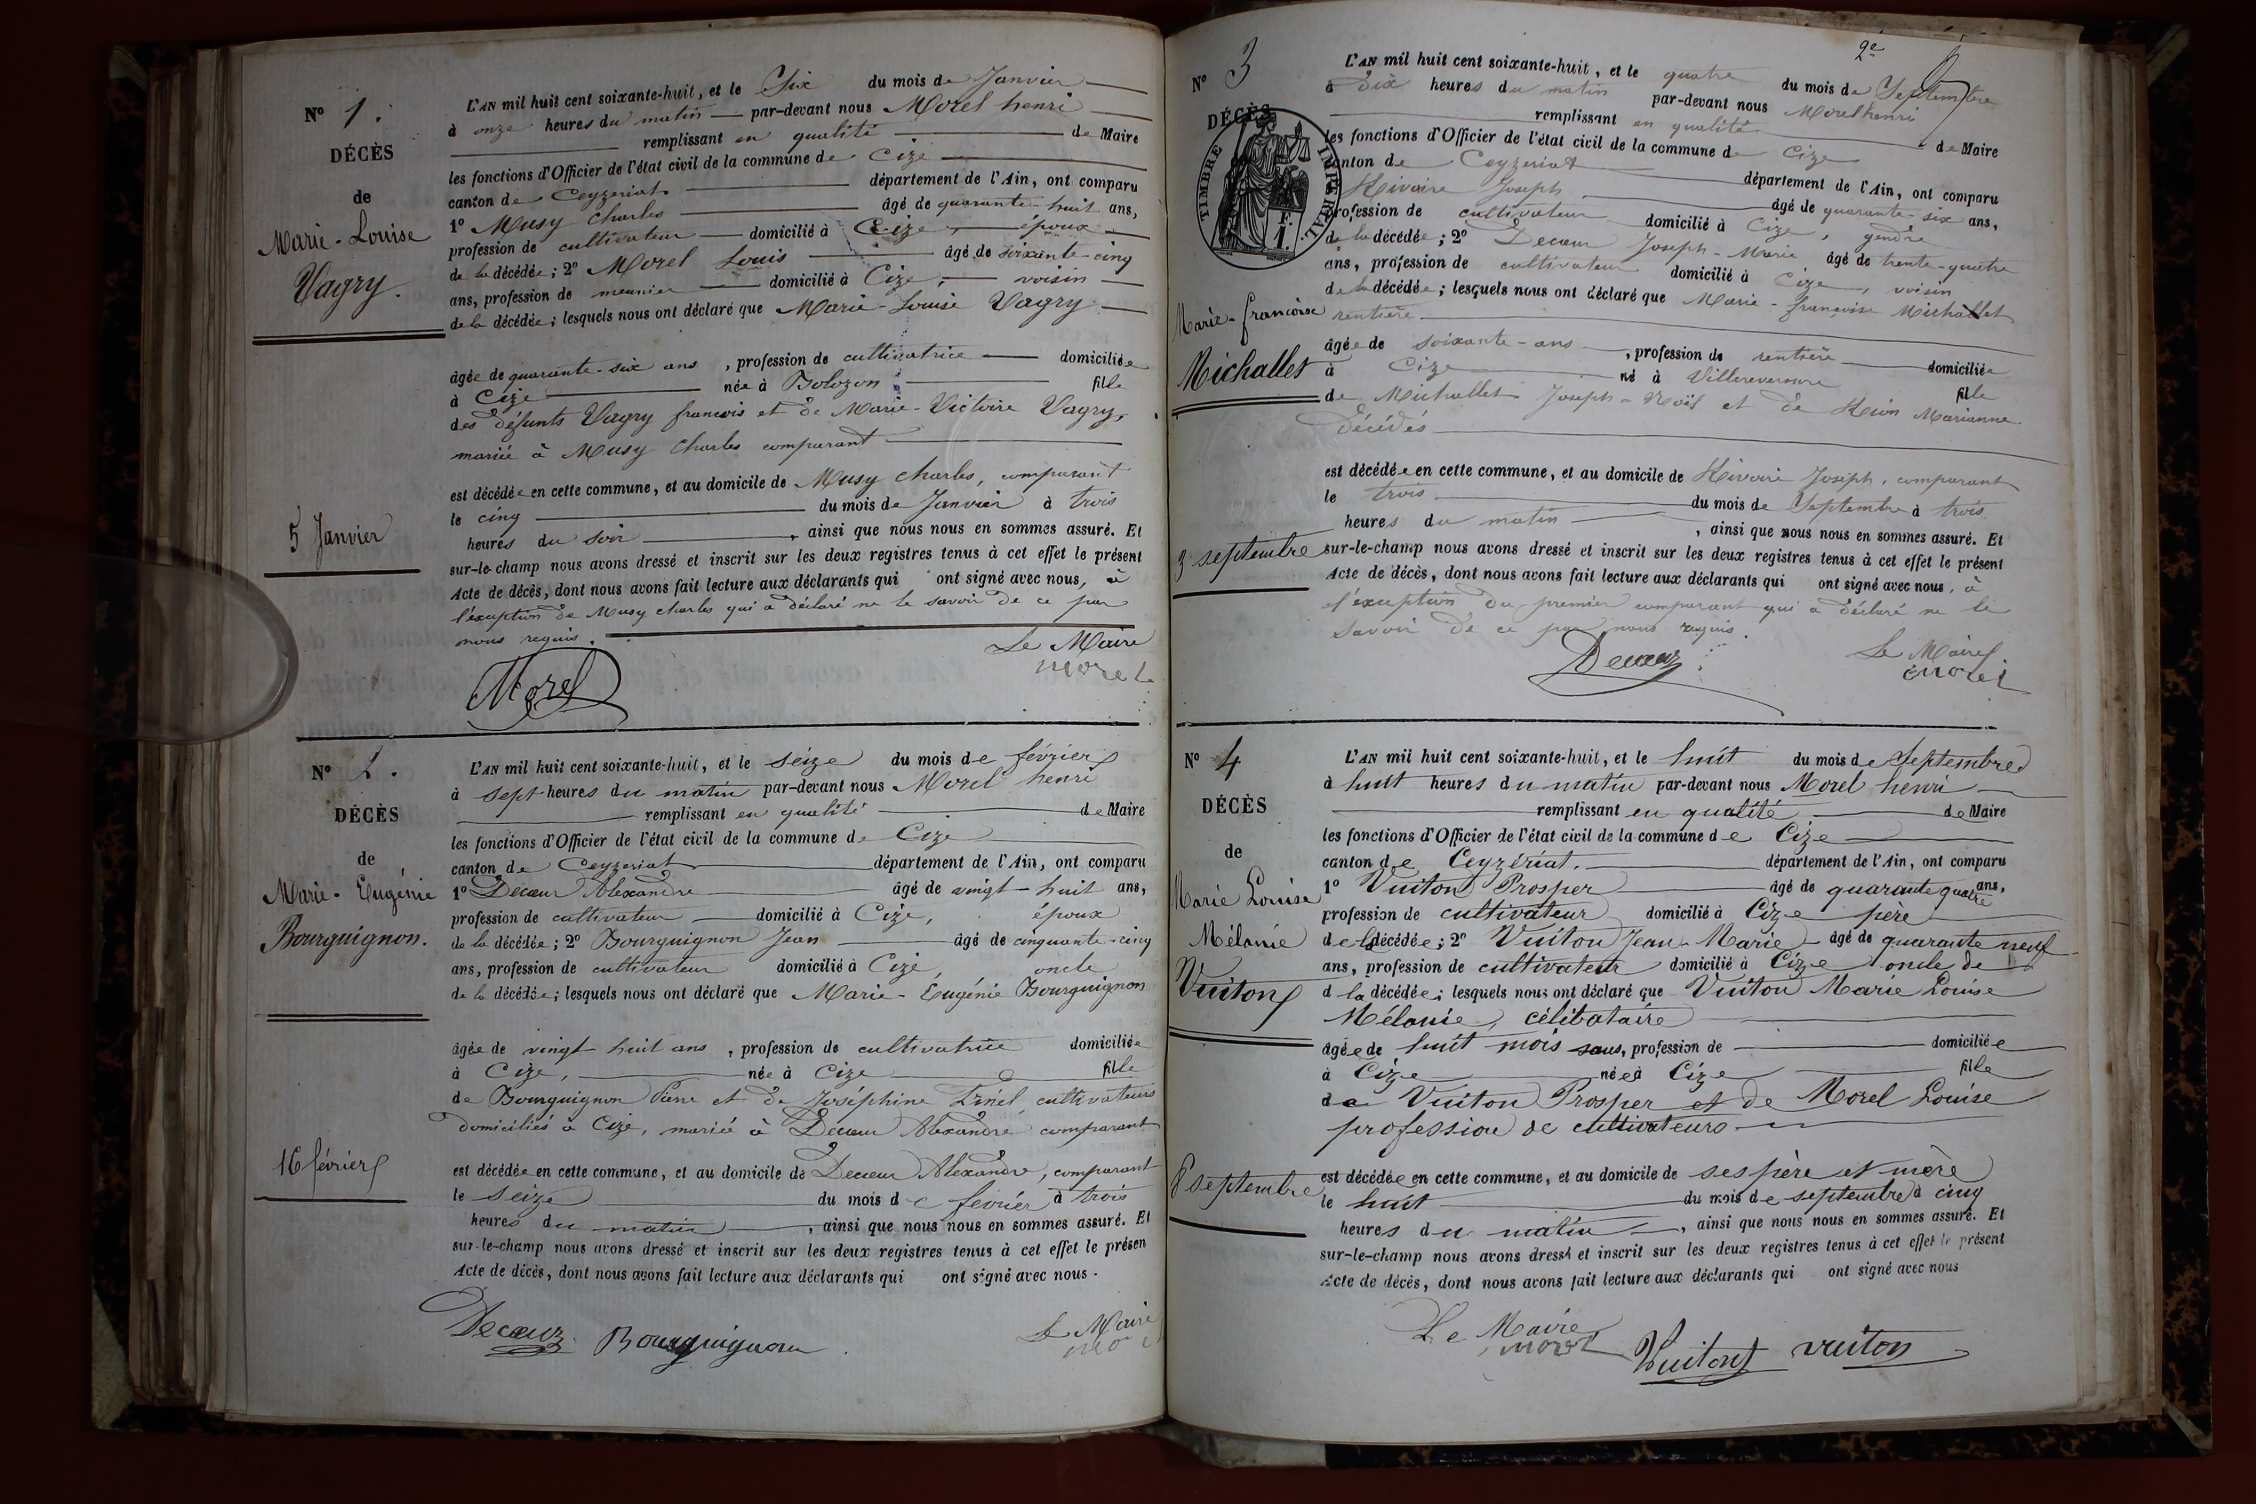 N° 1.
DÉCÈS
de
Marie-Louise
Vagry.
5 Janvier
L'AN mil huit cent soixante-huit, et le Six du mois de Janvier
à onze heures du matin par-devant nous Morel henri
remplissant en qualité de Maire
les fonctions d'Officier de l'état civil de la commune de Cize
canton de Ceyzeriat département de l'Ain, ont comparu
1° Musy Charles âgé de quarante-huit ans,
profession de cultivateur domicilié à Cize, époux
de la décédée; 2° Morel Louis âgé de soixante-cinq
ans, profession de meunier domicilié à Cize, voisin
de la décédée; lesquels nous ont déclaré que Marie-Louise Vagry
âgée de quarante-six ans, profession de cultivatrice domiciliée
à Cize née à Bolozon fille
des défunts Vagry francois et de Marie-Victoire Vagry,
mariée à Musy Charles comparant
est décédée en cette commune, et au domicile de Musy Charles, comparant
le cinq du mois de Janvier à trois
heures du soir, ainsi que nous nous en sommes assuré. Et
sur-le-champ nous avons dressé et inscrit sur les deux registres tenus à cet effet le présent
Acte de décès, dont nous avons fait lecture aux déclarants qui ont signé avec nous, à
l'exception de Musy Charles qui a déclaré ne le savoir de ce par
nous requis.
Le Maire
Morel morel
N° 2.
DÉCÈS
de
Marie-Eugénie
Bourguignon.
16 février
L'AN mil huit cent soixante-huit, et le seize du mois de février
à sept heures du matin par-devant nous Morel henri
remplissant en qualité de Maire
les fonctions d'Officier de l'état civil de la commune de Cize
canton de Ceyzeriat département de l'Ain, ont comparu
1° Decœur Alexandre âgé de vingt-huit ans,
profession de cultivateur domicilié à Cize, époux
de la décédée; 2° Bourguignon Jean âgé de cinquante-cinq
ans, profession de cultivateur domicilié à Cize, oncle
de la décédée; lesquels nous ont déclaré que Marie-Eugénie Bourguignon
âgée de vingt huit ans, profession de cultivatrice domiciliée
à Cize, née à Cize fille
de Bourguignon Pierre et de Joséphine cultivateurs
domiciliés à Cize, mariée à Decœur Alexandre comparant
est décédée en cette commune, et au domicile de Decœur Alexandre, comparant
le seize du mois de février à trois
heures du matin, ainsi que nous nous en sommes assuré. Et
sur-le-champ nous avons dressé et inscrit sur les deux registres tenus à cet effet le présen
Acte de décès, dont nous avons fait lecture aux déclarants qui ont signé avec nous.
Decœur Bourguignon Le Maire
2e
N° 3
DÉCÈS
TIMBRE IMPÉRIAL
1 F.
Marie-francoise
Michallet
3 septembre
L'AN mil huit cent soixante-huit, et le quatre du mois de Septembre
à dix heures du matin par-devant nous Morel henri
remplissant en qualité de Maire
les fonctions d'Officier de l'état civil de la commune de Cize
canton de Ceyzeriat département de l'Ain, ont comparu
Hivoire Joseph âgé de quarante-six ans,
profession de cultivateur domicilié à Cize, gendre
de la décédée; 2° Decœur Joseph-Marie âgé de trente-quatre
ans, profession de cultivateur domicilié à Cize, voisin
de la décédée; lesquels nous ont déclaré que Marie-françoise Michallet
rentière
âgée de soixante-ans, profession de rentière domiciliée
à Cize né à Villereversure fille
de Michallet Joseph-Noël et de Marianne
décédés
est décédée en cette commune, et au domicile de Hivoire Joseph, comparant
le trois du mois de Septembre à trois
heures du matin, ainsi que nous nous en sommes assuré. Et
sur-le-champ nous avons dressé et inscrit sur les deux registres tenus à cet effet le présent
Acte de décès, dont nous avons fait lecture aux déclarants qui ont signé avec nous, à
l'exception du premier comparant qui a déclaré ne le
savoir de ce par nous requis.
Decœur Le Maire
morel
N° 4
DÉCÈS
de
Marie Louise
Mélanie
Vuiton
8 septembre
L'AN mil huit cent soixante-huit, et le huit du mois de Septembre
à huit heures du matin par-devant nous Morel henri
remplissant en qualité de Maire
les fonctions d'Officier de l'état civil de la commune de Cize
canton de Ceyzériat. département de l'Ain, ont comparu
1° Vuiton Prosper âgé de quarante quatre ans,
profession de cultivateur domicilié à Cize père
de la décédée; 2° Vuiton Jean-Marie âgé de quarante neuf
ans, profession de cultivateur domicilié à Cize oncle de
d la décédée; lesquels nous ont déclaré que Vuiton Marie Louise
Mélanie, célibataire
âgée de huit mois sans, profession de domiciliée
à Cize née à Cize fille
de Vuiton Prosper et de Morel Louise
profession de cultivateurs
est décédée en cette commune, et au domicile de ses père et mère
le huit du mois de septembre à cinq
heures du matin, ainsi que nous nous en sommes assuré. Et
sur-le-champ nous avons dressé et inscrit sur les deux registres tenus à cet effet le présent
Acte de décès, dont nous avons fait lecture aux déclarants qui ont signé avec nous
Le Maire
morel Vuiton vuiton